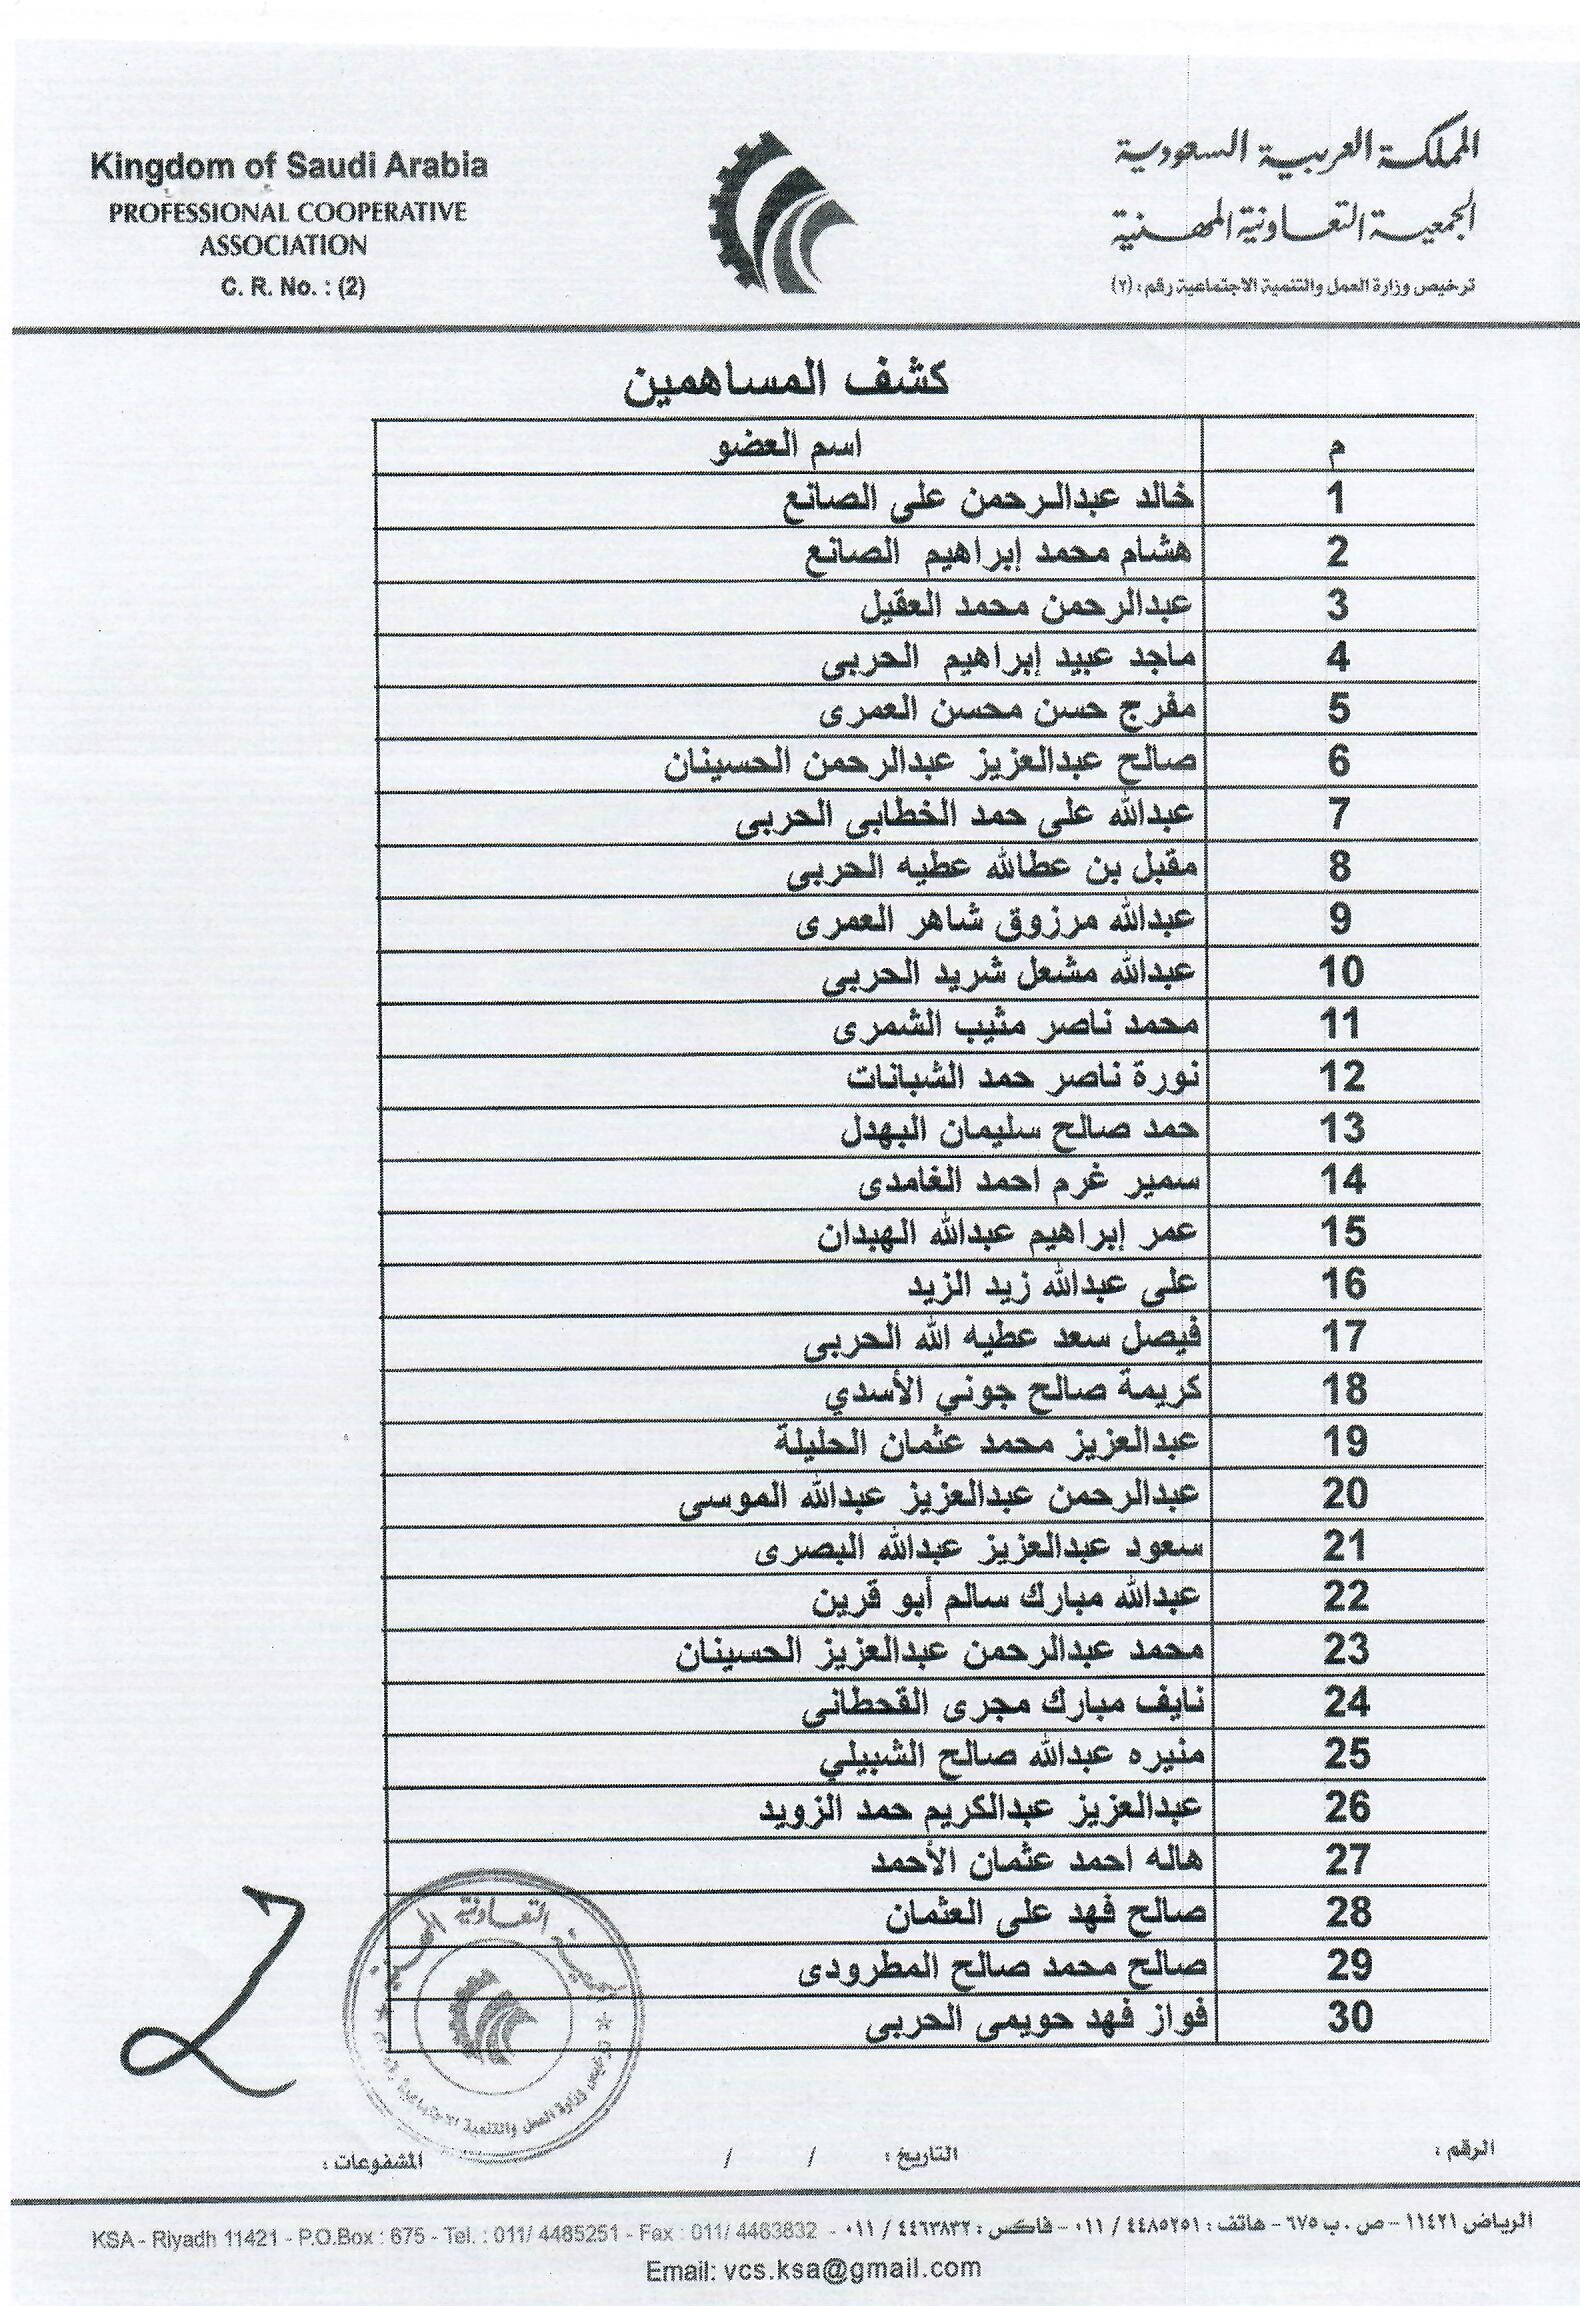 Kingdom of Saudi Arabia
PROFESSIONAL COOPERATIVE
ASSOCIATION
C. R. No. : (2)
المملكة العربية السعودية
الجمعية التعاونية المهنية
ترخيص وزارة العمل والتنمية الاجتماعية رقم: (٢)
كشف المساهمين
م اسم العضو
1 خالد عبدالرحمن على الصانع
2 هشام محمد إبراهيم الصانع
3 عبدالرحمن محمد العقيل
4 ماجد عبيد إبراهيم الحربى
5 مفرج حسن محسن العمرى
6 صالح عبدالعزيز عبدالرحمن الحسينان
7 عبدالله على حمد الخطابى الحربى
8 مقبل بن عطالله عطيه الحربى
9 عبدالله مرزوق شاهر العمرى
10 عبدالله مشعل شريد الحربى
11 محمد ناصر مثيب الشمرى
12 نورة ناصر حمد الشبانات
13 حمد صالح سليمان البهدل
14 سمير غرم احمد الغامدى
15 عمر إبراهيم عبدالله الهبدان
16 على عبدالله زيد الزيد
17 فيصل سعد عطيه الله الحربى
18 كريمة صالح جوني الأسدي
19 عبدالعزيز محمد عثمان الحليلة
20 عبدالرحمن عبدالعزيز عبدالله الموسى
21 سعود عبدالعزيز عبدالله البصرى
22 عبدالله مبارك سالم أبو قرين
23 محمد عبدالرحمن عبدالعزيز الحسينان
24 نايف مبارك مجرى القحطانى
25 منيره عبدالله صالح الشبيلي
26 عبدالعزيز عبدالكريم حمد الزويد
27 هاله احمد عثمان الأحمد
28 صالح فهد على العثمان
29 صالح محمد صالح المطرودى
30 فواز فهد حويمى الحربى
الجمعية التعاونية المهنية
ترخيص وزارة العمل والتنمية الاجتماعية
الرقم : التاريخ : / / المشفوعات :
الرياض ١١٤٢١ - ص . ب ٦٧٥ - هاتف : ٤٤٨٥٢٥١ / ٠١١ - فاكس : ٤٤٦٣٨٣٢ / ٠١١ -
KSA - Riyadh 11421 - P.O.Box : 675 - Tel. : 011/ 4485251 - Fax : 011/ 4463832
Email: vcs.ksa@gmail.com